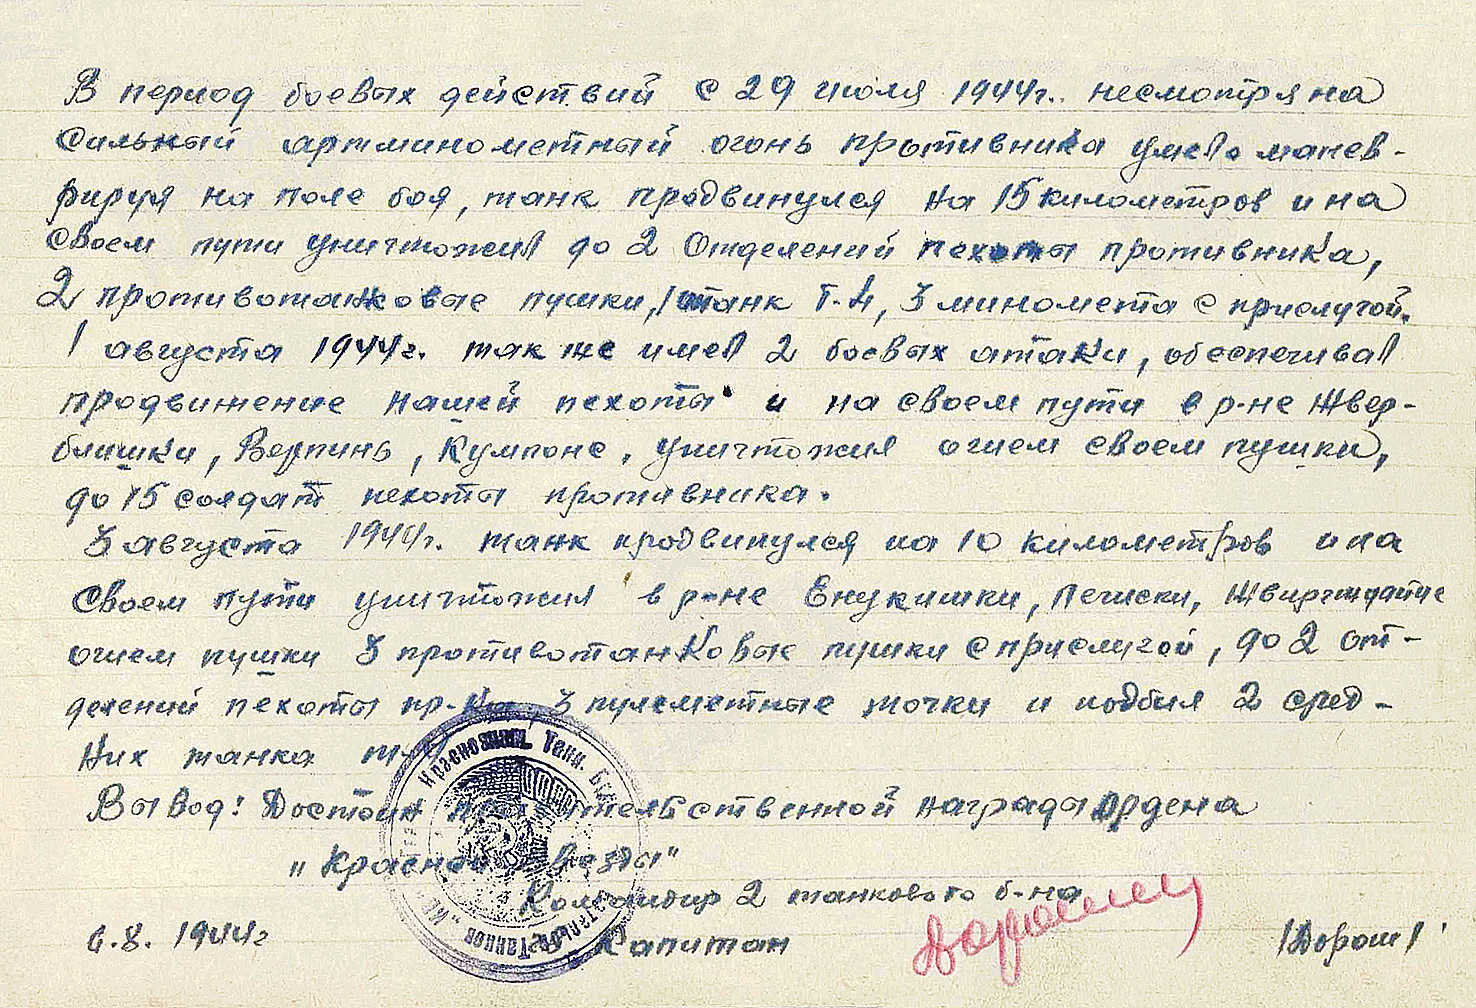 В период боевых действий с 29 июля 1944г. несмотря на
сильный артминометный огонь противника умело манев-
рируя на поле боя, танк продвинулся на 15 километров и на
своем пути уничтожил до 2 отделений пехоты противника,
2 противотанковые пушки, 1 танк Т-4, 3 миномета с прислугой.
1 августа 1944г. так же имел 2 боевых атаки, обеспечивал
продвижение нашей пехоты и на своем пути в р-не Жвер-
блишки, Верпинь, Кумпоне, уничтожил огнем своем пушки,
до 15 солдат пехоты противника.
3 августа 1944г. танк продвинулся на 10 километров и на
своем пути уничтожил в р-не Енукишки, Печиски,
огнем пушки 3 противотанковые пушки с прислугой, до 2 от-
делений пехоты пр-ка, 3 пулеметные точки и подбил 2 сред-
них танка
Вывод: Достоин правительственной награды Ордена
"Красной Звезды"
Командир 2 танкового б-на
6.8.1944г Капитан /Дорош/
Краснознам. Танк.